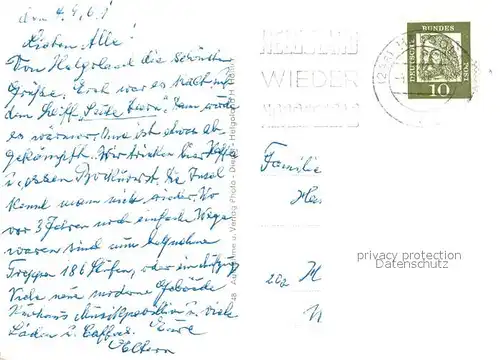 den 4.9.61
Lieben Alle!
Von Helgoland die schönsten
Grüße. Erst war es kalt auf
dem Schiff "Seute Deern". Dann wurde
es wärmer. Anne ist etwas ab
gekämpft. Wir trinken hier Kaffee
u. essen Bockwurst. Die Insel
kennt man nicht wieder. Wo
vor 3 Jahren noch einfache Wege
waren sind nun bequeme
Treppen 186 Stufen, oder ein
Viele neue moderne Gebäude
Kurhaus Musikpavillon u. viele
Läden u. Caffees. Eure
Eltern
Aufnahme u. Verlag Photo - Helgoland H
WIEDER
DEUTSCHE BUNDESPOST
10
Familie
20a
privacy protection
Datenschutz